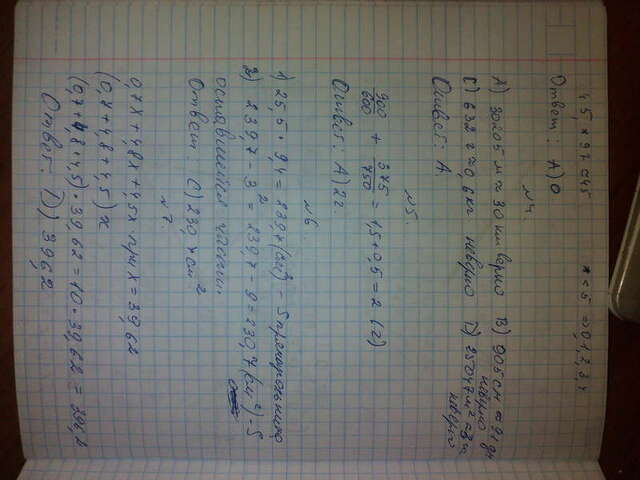 45,*92≈45 * < 5 ⇒ 0,1,2,3,4
Ответ: А) 0
№4.
А) 30205 м ≈ 30 км верно В) 905 см ≈ 91 дм неверно
С) 632 г ≈ 0,6 кг неверно D) 25047 м² ≈ 3 га неверно
Ответ: А.
№5.
900/600 + 375/750 = 1,5+0,5=2 (г)
Ответ: А) 2 г.
№6
1) 25,5 · 9,4 = 239,7 (см²) - S прямоугольника
2) 239,7 - 3² = 239,7 - 9 = 230,7 (см²) - S
оставшейся части.
Ответ: С) 230,7 см²
№7.
0,7x + 4,8x + 4,5x при x = 39,62
(0,7 + 4,8 + 4,5) x
(0,7 + 4,8 + 4,5) · 39,62 = 10 · 39,62 = 396,2
Ответ: D) 396,2